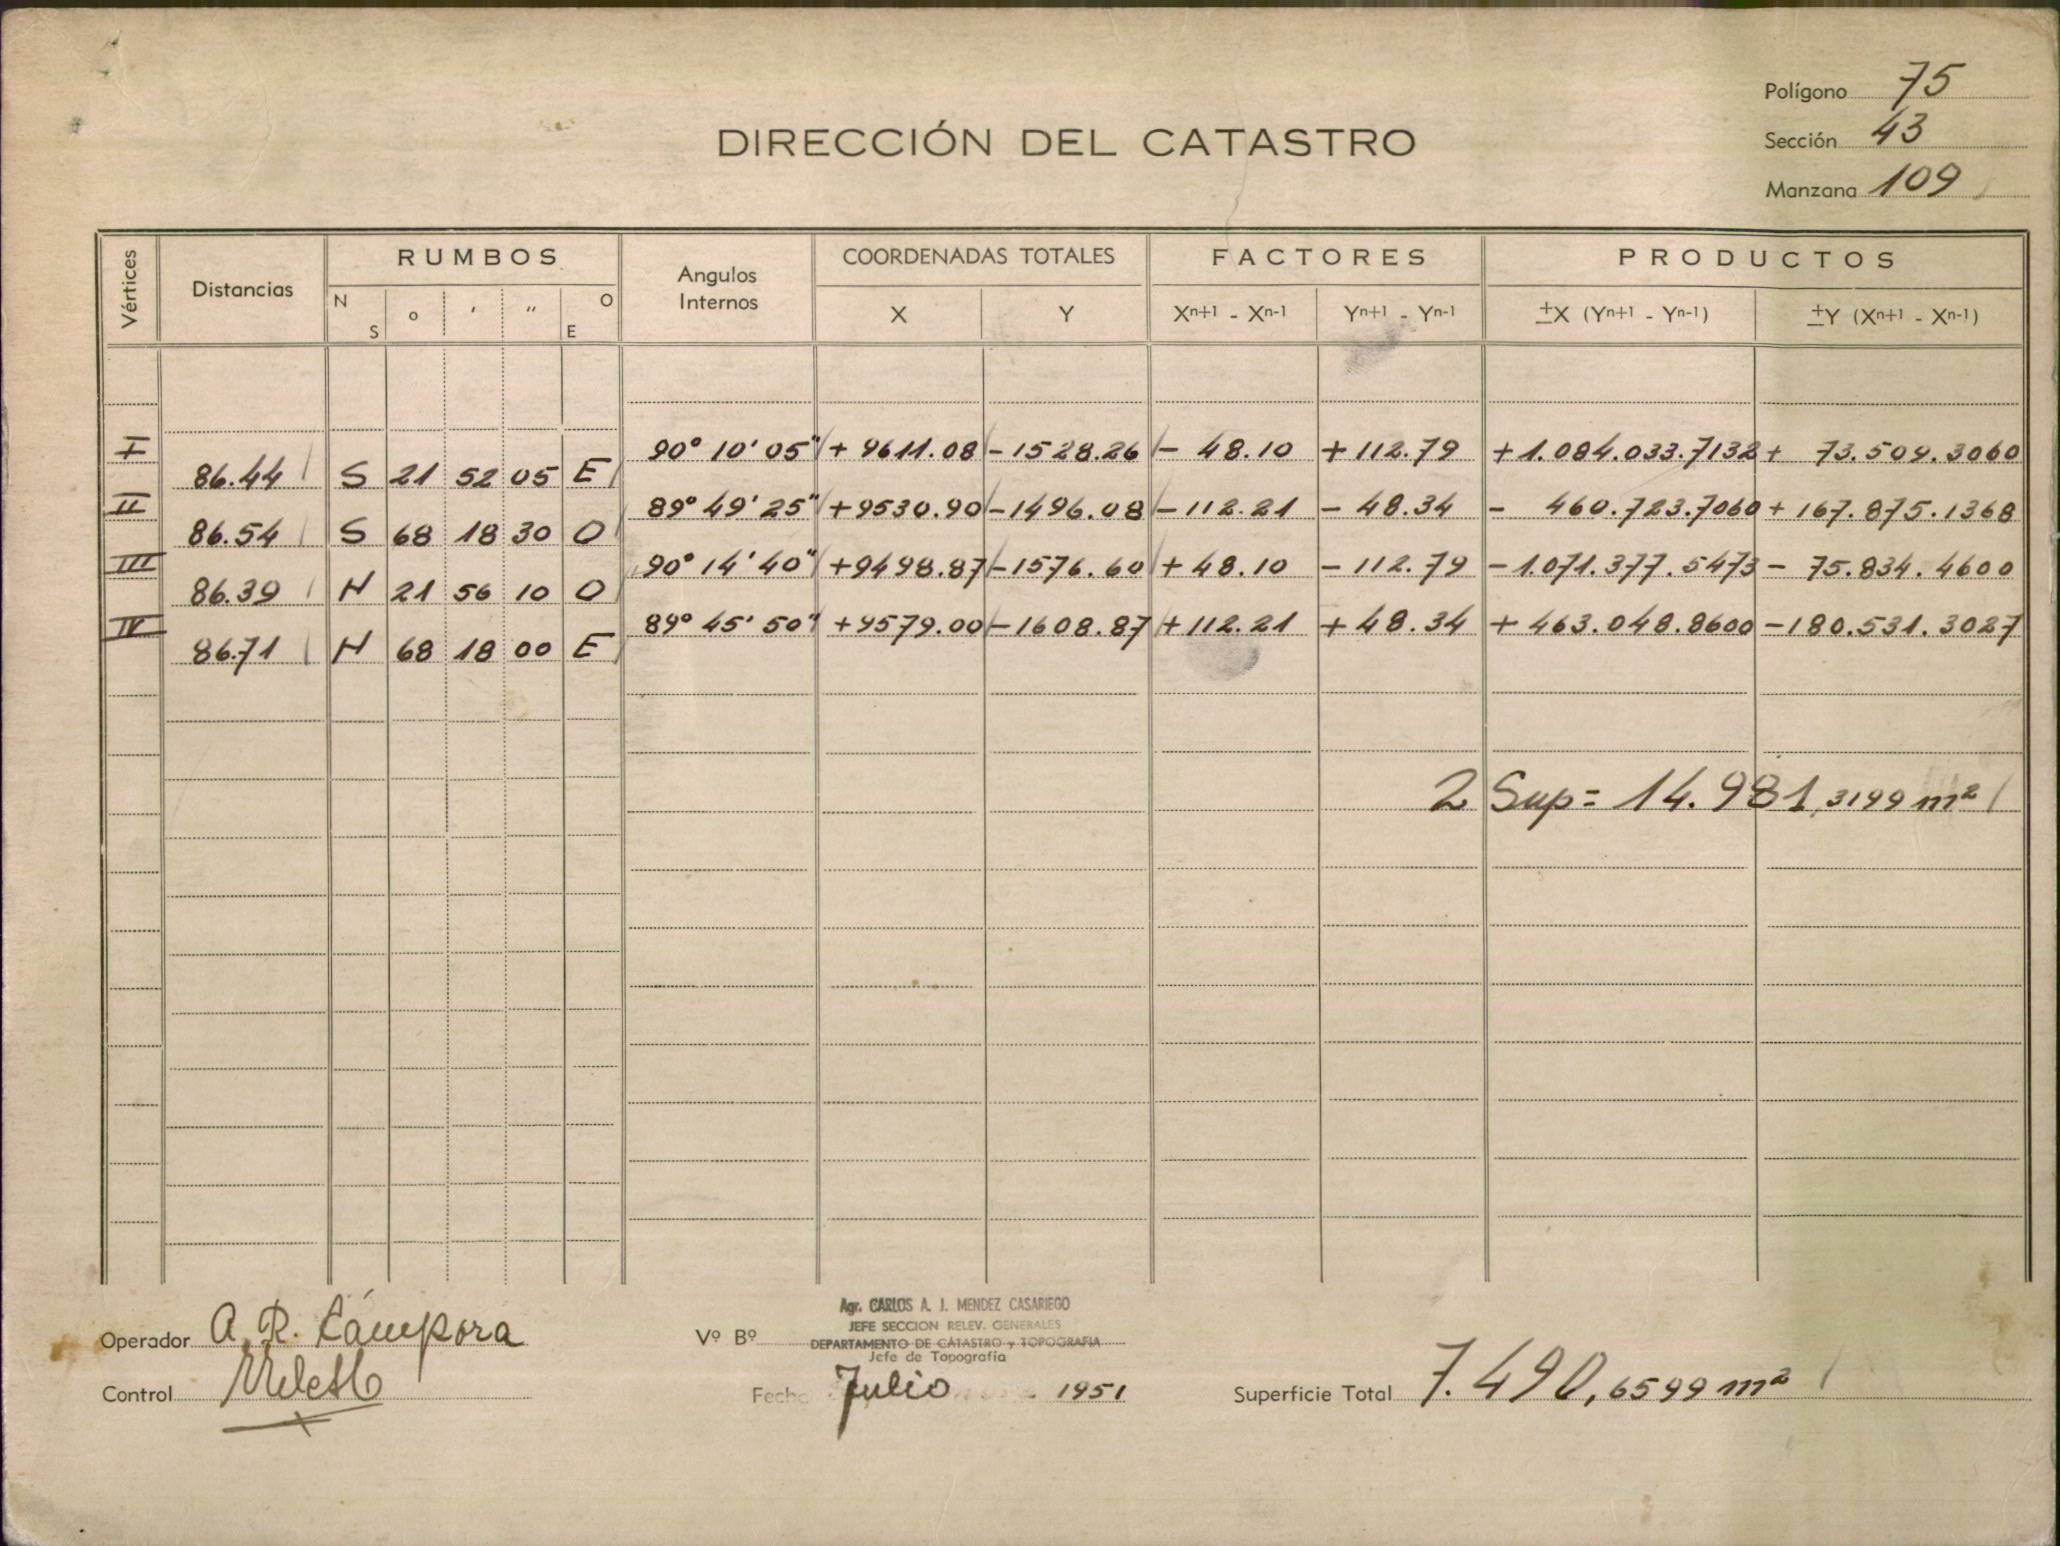 Polígono 75
DIRECCIÓN DEL CATASTRO
Sección 43
Manzana 109
Vértices Distancias RUMBOS Angulos Internos COORDENADAS TOTALES FACTORES PRODUCTOS
N S o ′ ″ O E X Y Xⁿ⁺¹ - Xⁿ⁻¹ Yⁿ⁺¹ - Yⁿ⁻¹ ±X (Yⁿ⁺¹ - Yⁿ⁻¹) ±Y (Xⁿ⁺¹ - Xⁿ⁻¹)
I 90° 10' 05" + 9611.08 - 1528.26 - 48.10 + 112.79 + 1.084.033.7132 + 73.509.3060
86.44 S 21 52 05 E
II 89° 49' 25" + 9530.90 - 1496.08 - 112.21 - 48.34 - 460.723.7060 + 167.875.1368
86.54 S 68 18 30 O
III 90° 14' 40" + 9498.87 - 1576.60 + 48.10 - 112.79 - 1.071.377.5473 - 75.834.4600
86.39 N 21 56 10 O
IV 89° 45' 50" + 9579.00 - 1608.87 + 112.21 + 48.34 + 463.048.8600 - 180.531.3027
86.71 N 68 18 00 E
2 Sup = 14.981,3199 m²
Operador A. R. Cámpora
Vº Bº
Agr. CARLOS A. J. MENDEZ CASARIEGO
JEFE SECCION RELEV. GENERALES
DEPARTAMENTO DE CATASTRO y TOPOGRAFIA
Jefe de Topografía
Control
Fecha Julio 1951
Superficie Total 7.490,6599 m²